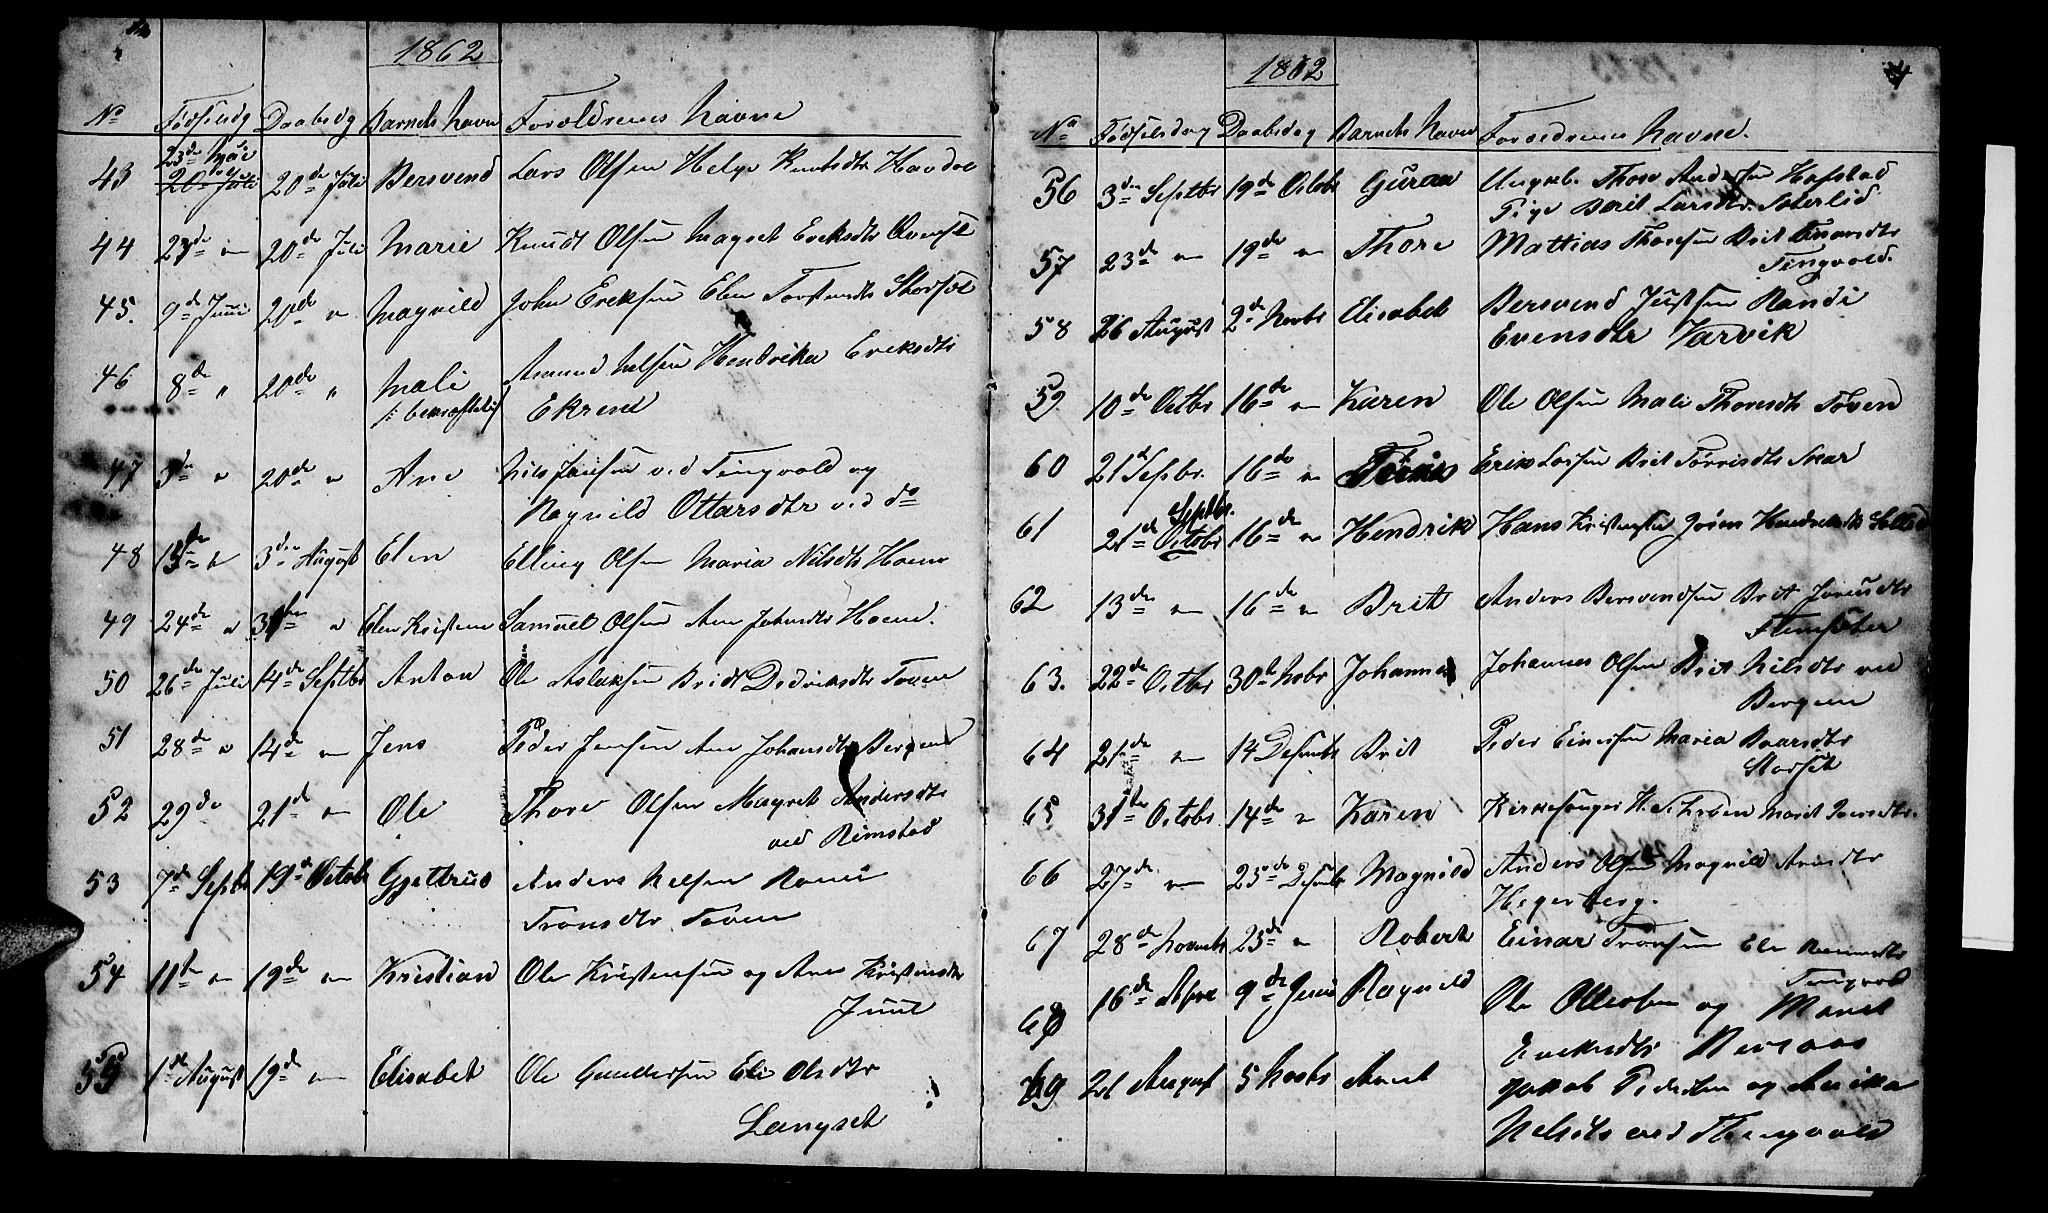 1862
No Fødselsdg Daabsdg Barnets Navn Forældrenes Navne
43 23de Mai 20de Juli 20de Juli Bersvend Lars Olsen Helge Knutsdtr Havdal
44 23de — 20de Juli Marie Knudt Olsen Magret Eriksdtr
45. 9de Juni 20de " Magnild John Eriksen Elen Torstensdtr Storset
46 8de " 20de " Mali Amund Nilsen Hendrika Eriksdtr
Ekren
47 3de " 20de " Ane Nils Jensen ved Tingvold og
Ragnild Ottarsdtr ved do
48 13de " 3die August Elen Elling Olsen Maria Nilsdtr Hoem
49 24de " 31te " Elen Kristene Samuel Olsen Ane Johnsdtr Hoem.
50 26de Juli 14de Septbr Anton Ole Aslaksen Bridt Dedriksdtr Toven
51 28de " 14de — Jens Peder Jensen Ane Johansdtr Bergem
52 29de 21de — Ole Thore Olsen Magret Andersdtr
ved Rimstad
53 7de Septbr 19de Octobr Gjettrud Anders Nelsen
Tronsdtr Toven
54 11te — 19de — Kristian Ole Kristensen og Ane Kristensdtr
Juul
55 1ste August 19de — Elisabet Ole Gundersen Eli Olsdtr
Langset
1862
4
No Fødselsdag Daabsdag Barnets Navn Foreldrenes Navne.
56 3die Septbr 19de Octobr Guran Ungkl. Thore Andersen Hafstad
Pige Berit Larsdtr.
57 23de — 19de — Thore Mattias Thoresen Brit
Tingvold.
58 26 August 2de Novbr Elisabet Bersvend Justsen Randi
Evensdtr Varvik
59 10de Octbr 16de — Karen Ole Olsen Mali Thoresdtr Toven
60 21de Sepbr. 16de — Erik Brit
Septbr.
61 21de Octobr 16de — Hendrik Hans Kristensen Hendriksdtr
62 13de — 16de — Brit Anders Bersvendsen Brit
Flemsæter
63. 22de Octbr 30te Novbr Johannes Johannes Olsen Brit Nilsdtr ved
Bergem
64 21de — 14 Desembr Brit Peder Einersen Maria Baarsdtr
Storset
65 31te Octobr 14de " Karen Kirkesanger Marit
66 27de — 25de Desmbr Magnild Anders Olsen Magnild
Hegerberg.
67 28de Novembr 25de " Robert Einar Tronsen Eli
Tingvold
68 16de Apre 9de Juni Ragnild Ole Ottersen og Maret
Eriksdtr
69 21 August 5 Novbr Jakob Pedersen og
Nelsdtr ved Thingvold